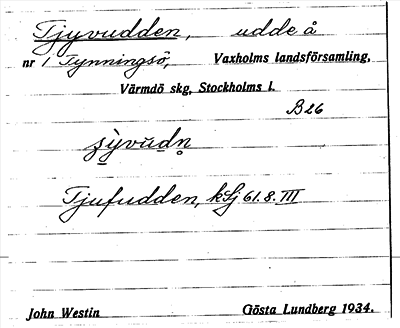 Tjyvudden, udde å
nr 1 Tynningsö, Vaxholms landsförsamling,
Värmdö skg, Stockholms l.
B26
Tjufudden, kSj 61.8.III
John Westin Gösta Lundberg 1934.